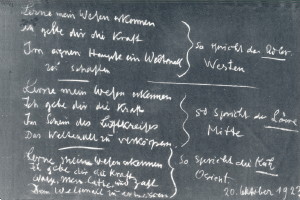 Lerne mein Wesen erkennen
Ich gebe dir die Kraft
Im eignen Haupte ein Weltenall
zu schaffen
so spricht der Adler
Westen
Lerne mein Wesen erkennen
Ich gebe dir die Kraft
Im Schein des Luftkreises
Das Weltenall zu verkörpern
so spricht der Löwe
Mitte
Lerne mein Wesen erkennen
Ich gebe dir die Kraft
Wage, mein Latte, und Zahl
Dem Weltenall zu entreissen
so spricht die Kuh
Orient
20. Oktober 1923